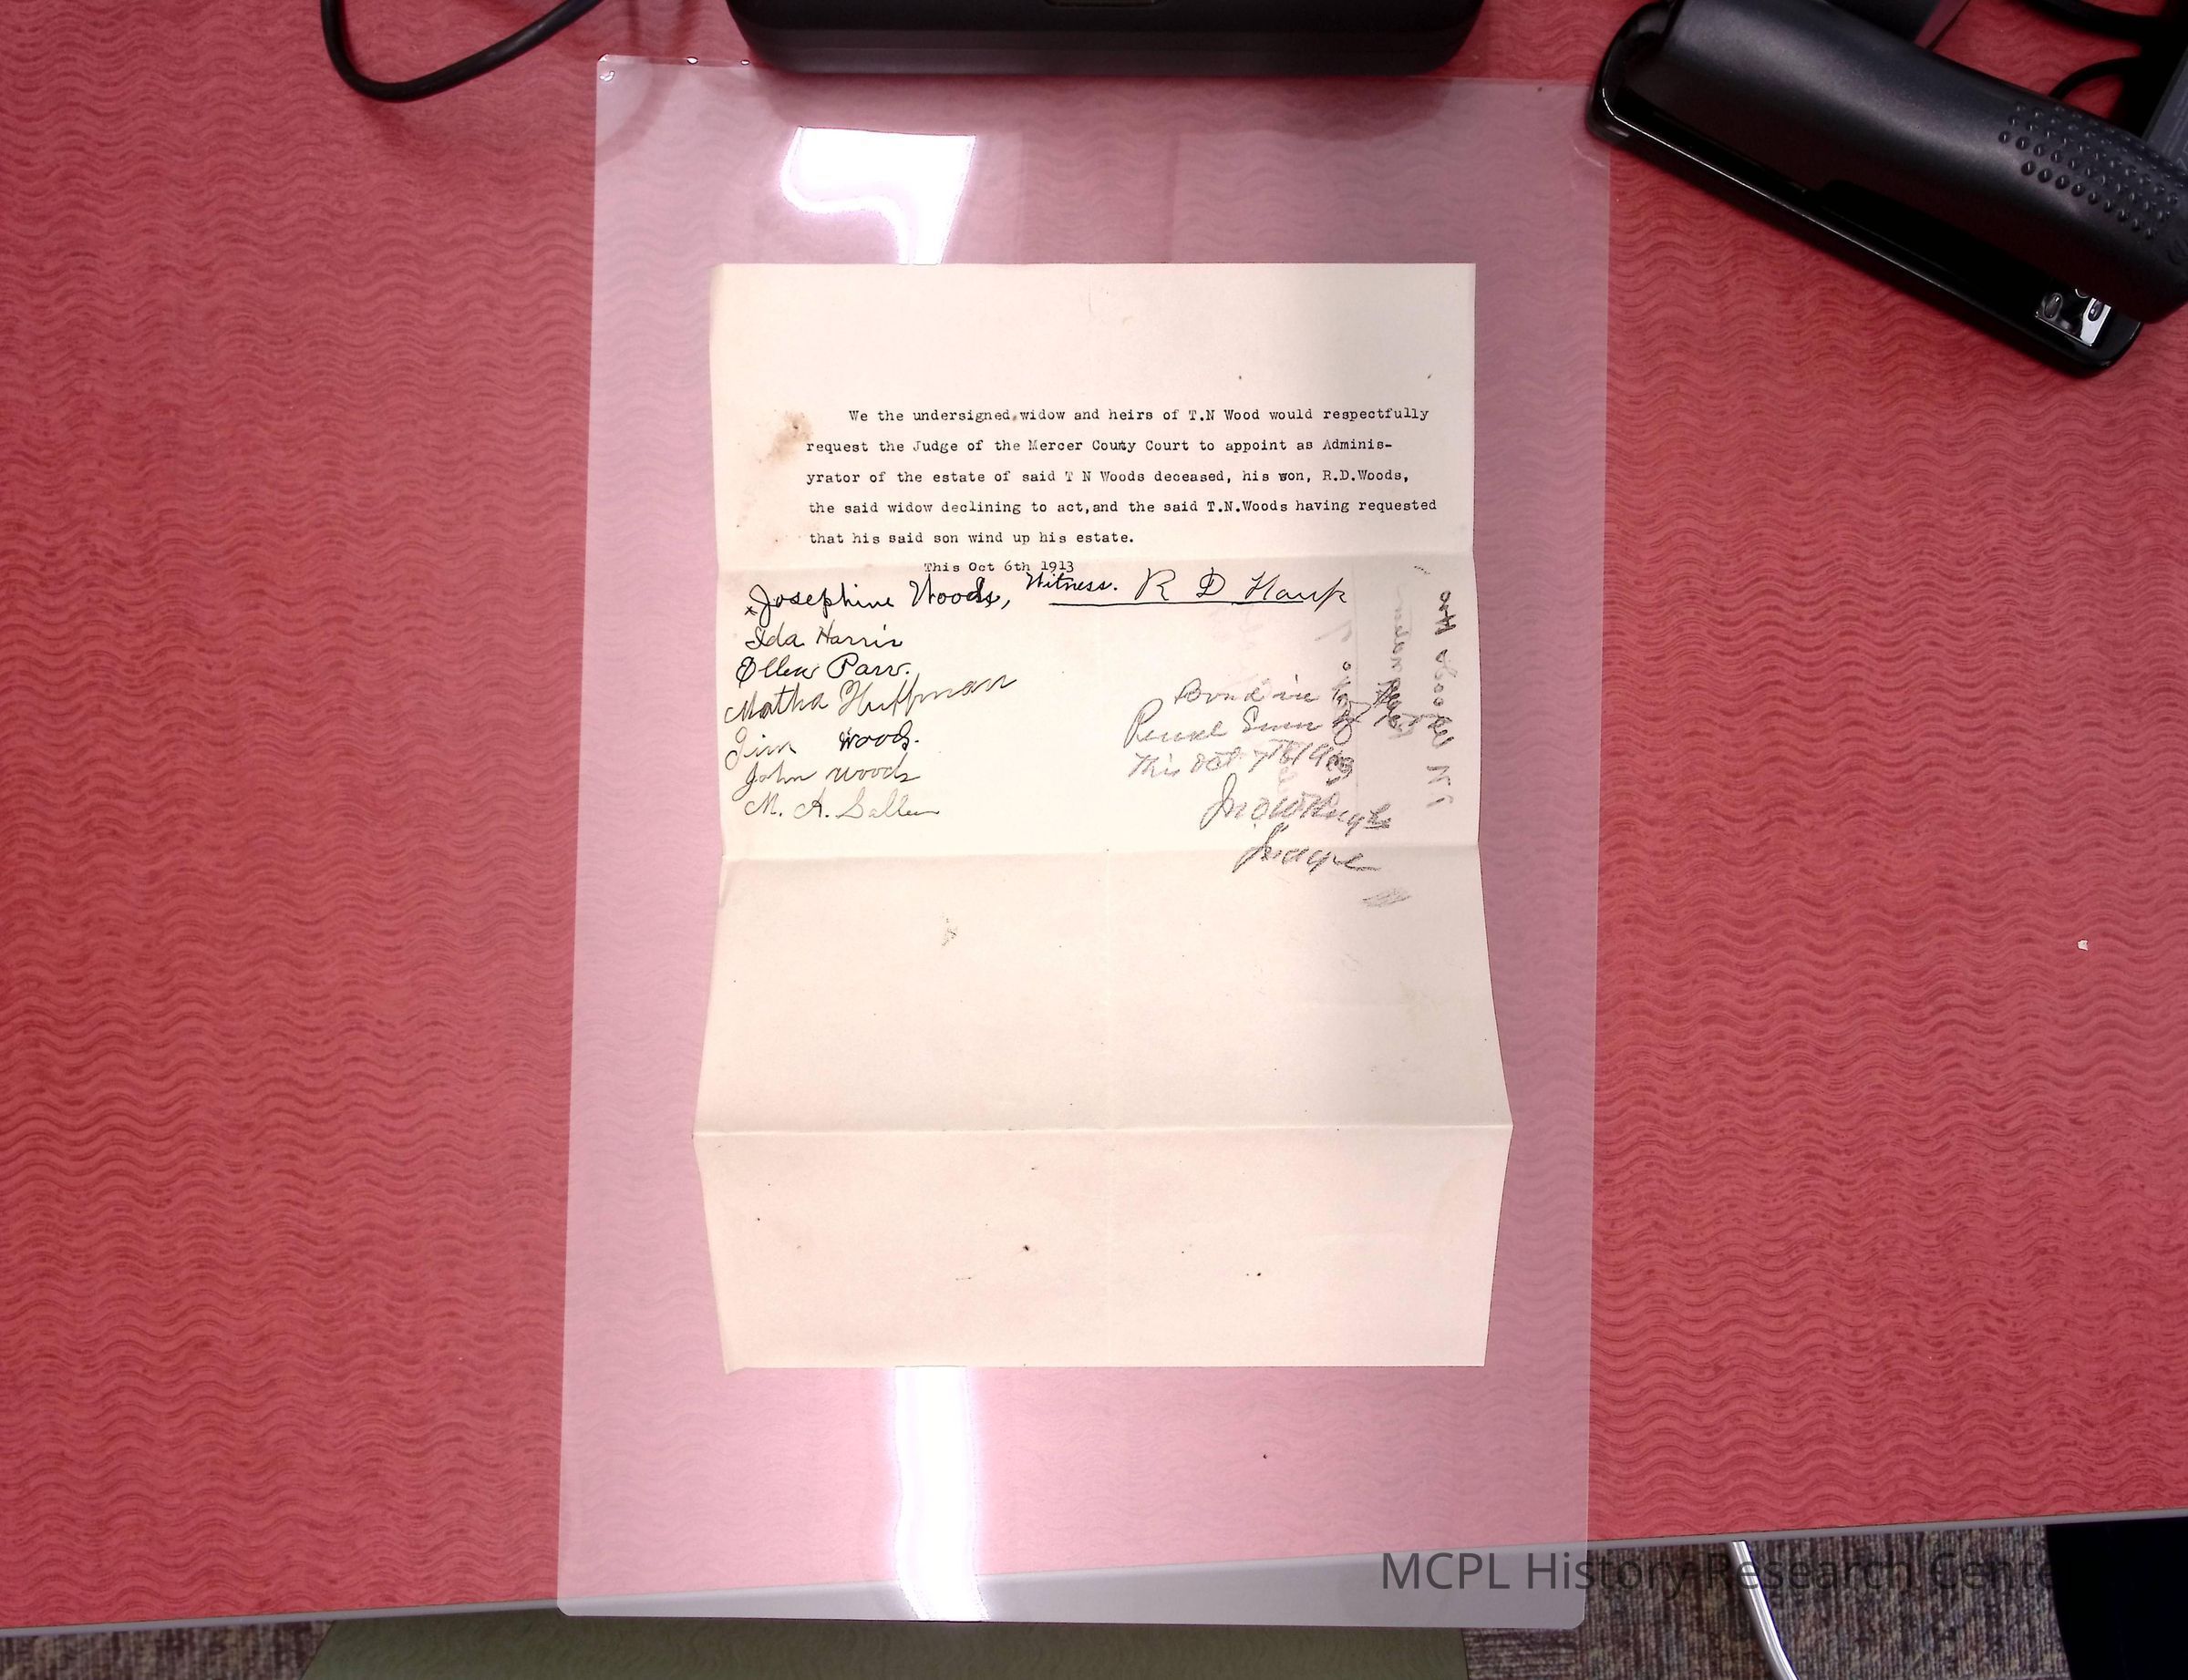 We the undersigned,widow and heirs of T.N Wood would respectfully
request the Judge of the Mercer County Court to appoint as Adminis-
yrator of the estate of said T N Woods deceased, his won, R.D.Woods,
the said widow declining to act,and the said T.N.Woods having requested
that his said son wind up his estate.
This Oct 6th 1913
x Josephine Woods, Witness. R D
Ida Harris
Ellen Parr.
Matha Huffman
Jim Woods.
John Woods
M. A. Sallee
Bond in
Penal Sum of
This Oct 7th 1913
Jno W Hughes
Judge
MCPL History Research Cente